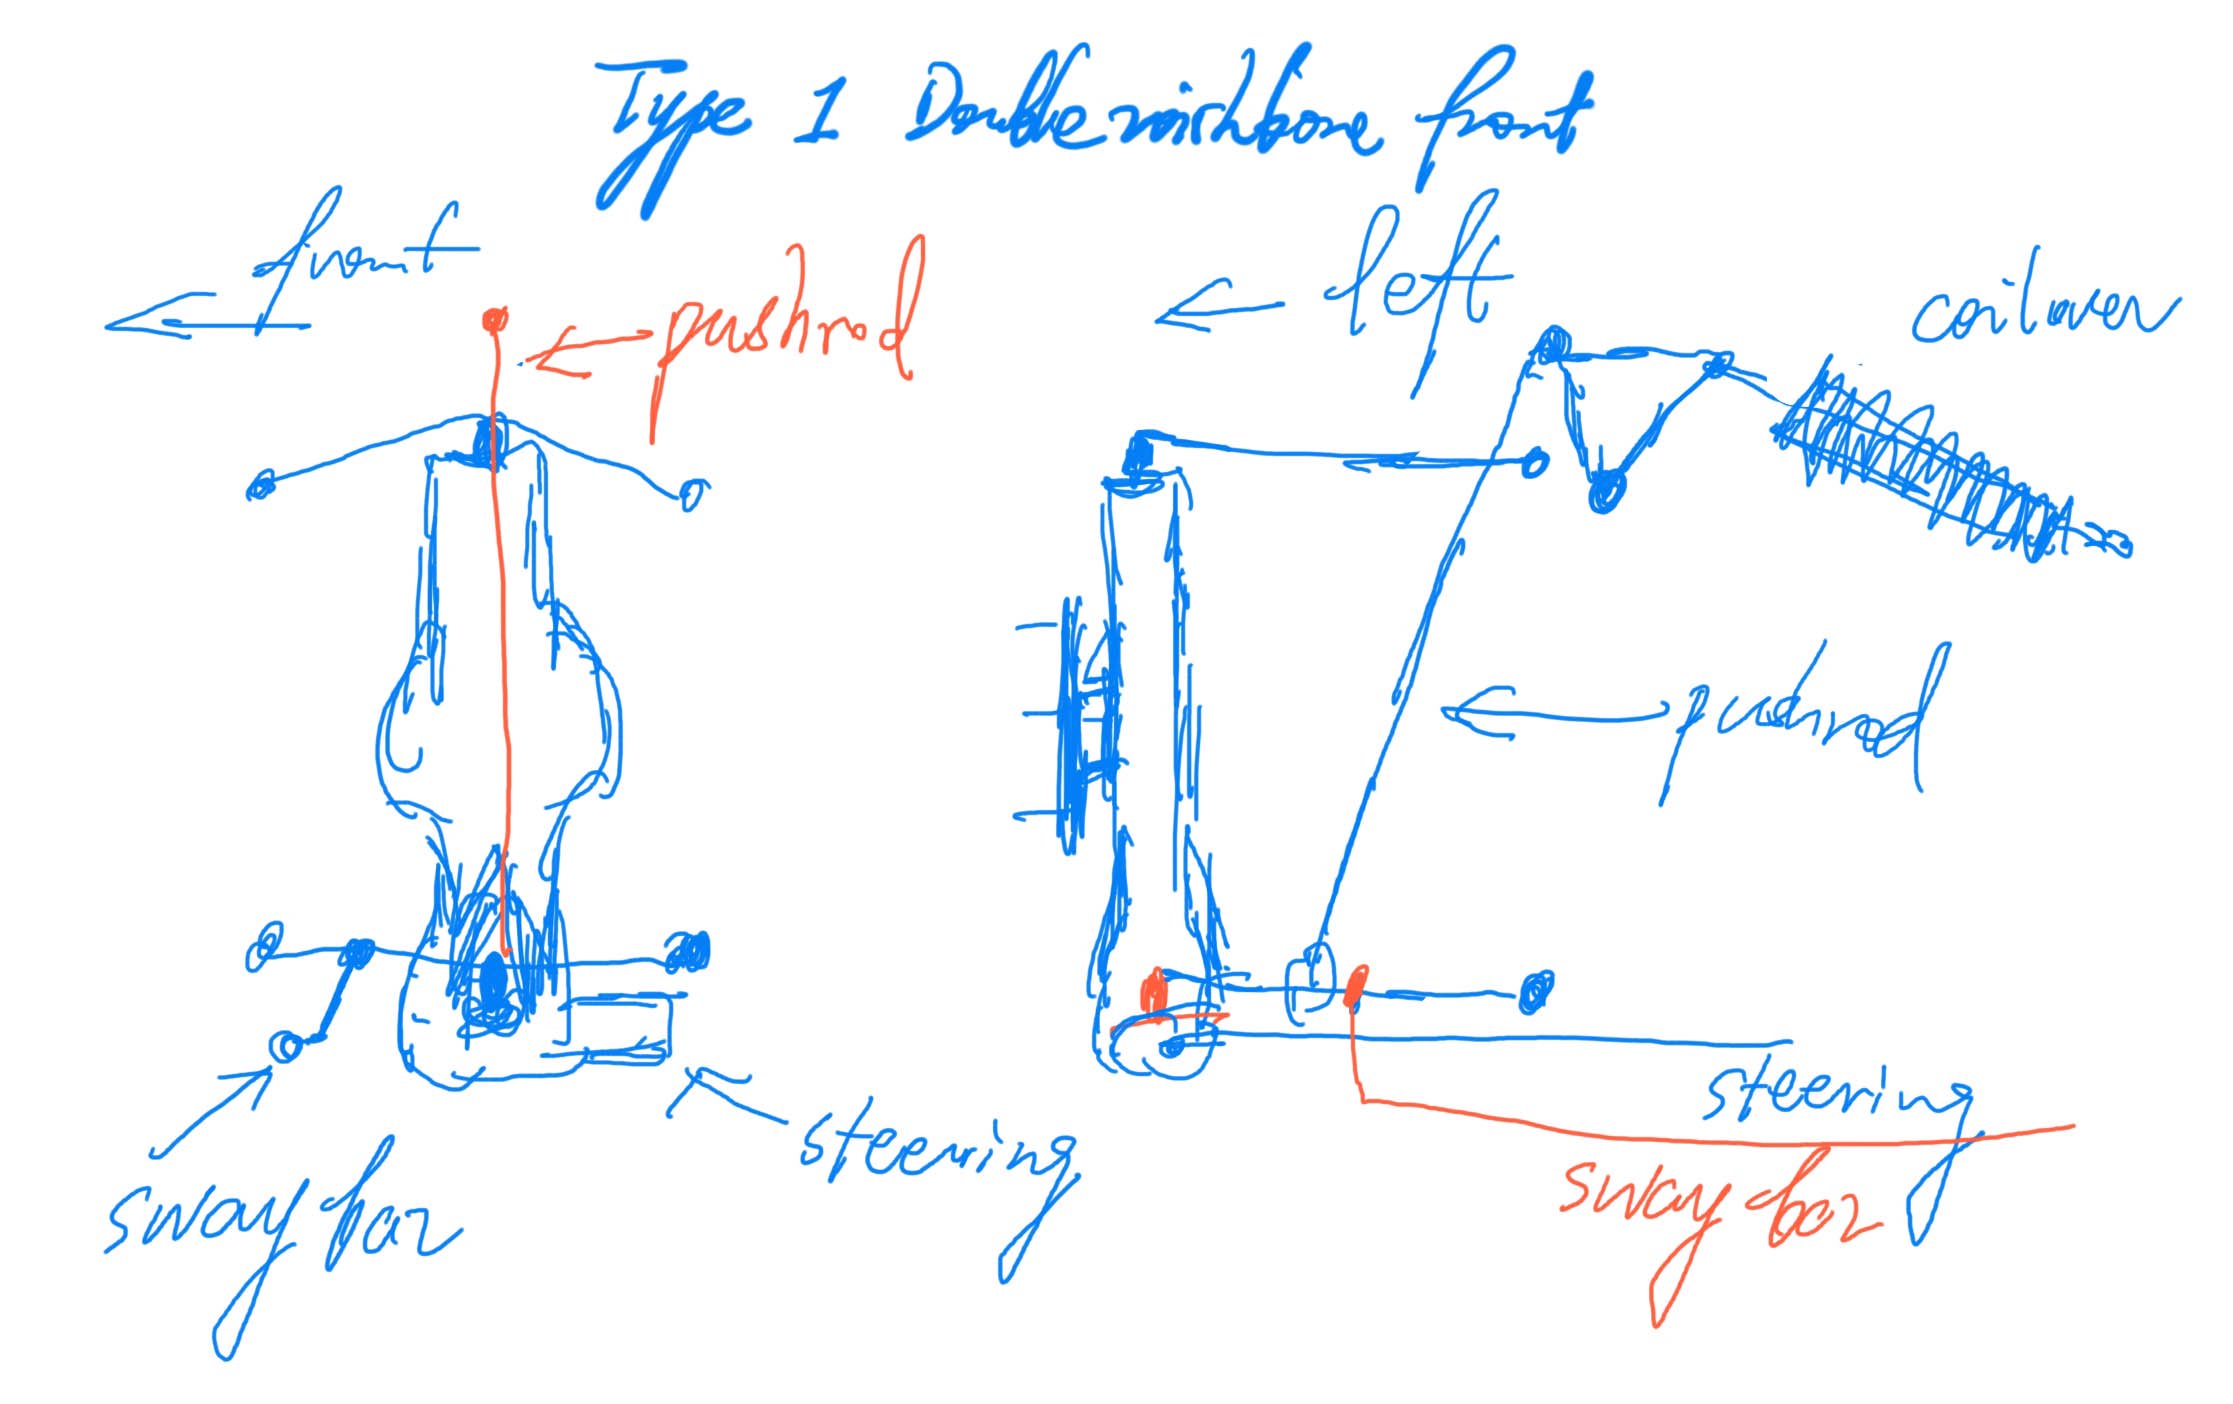 Type 1 Double wishbone front
front
pushrod
left
coilover
pushrod
steering
steering
sway bar
sway bar